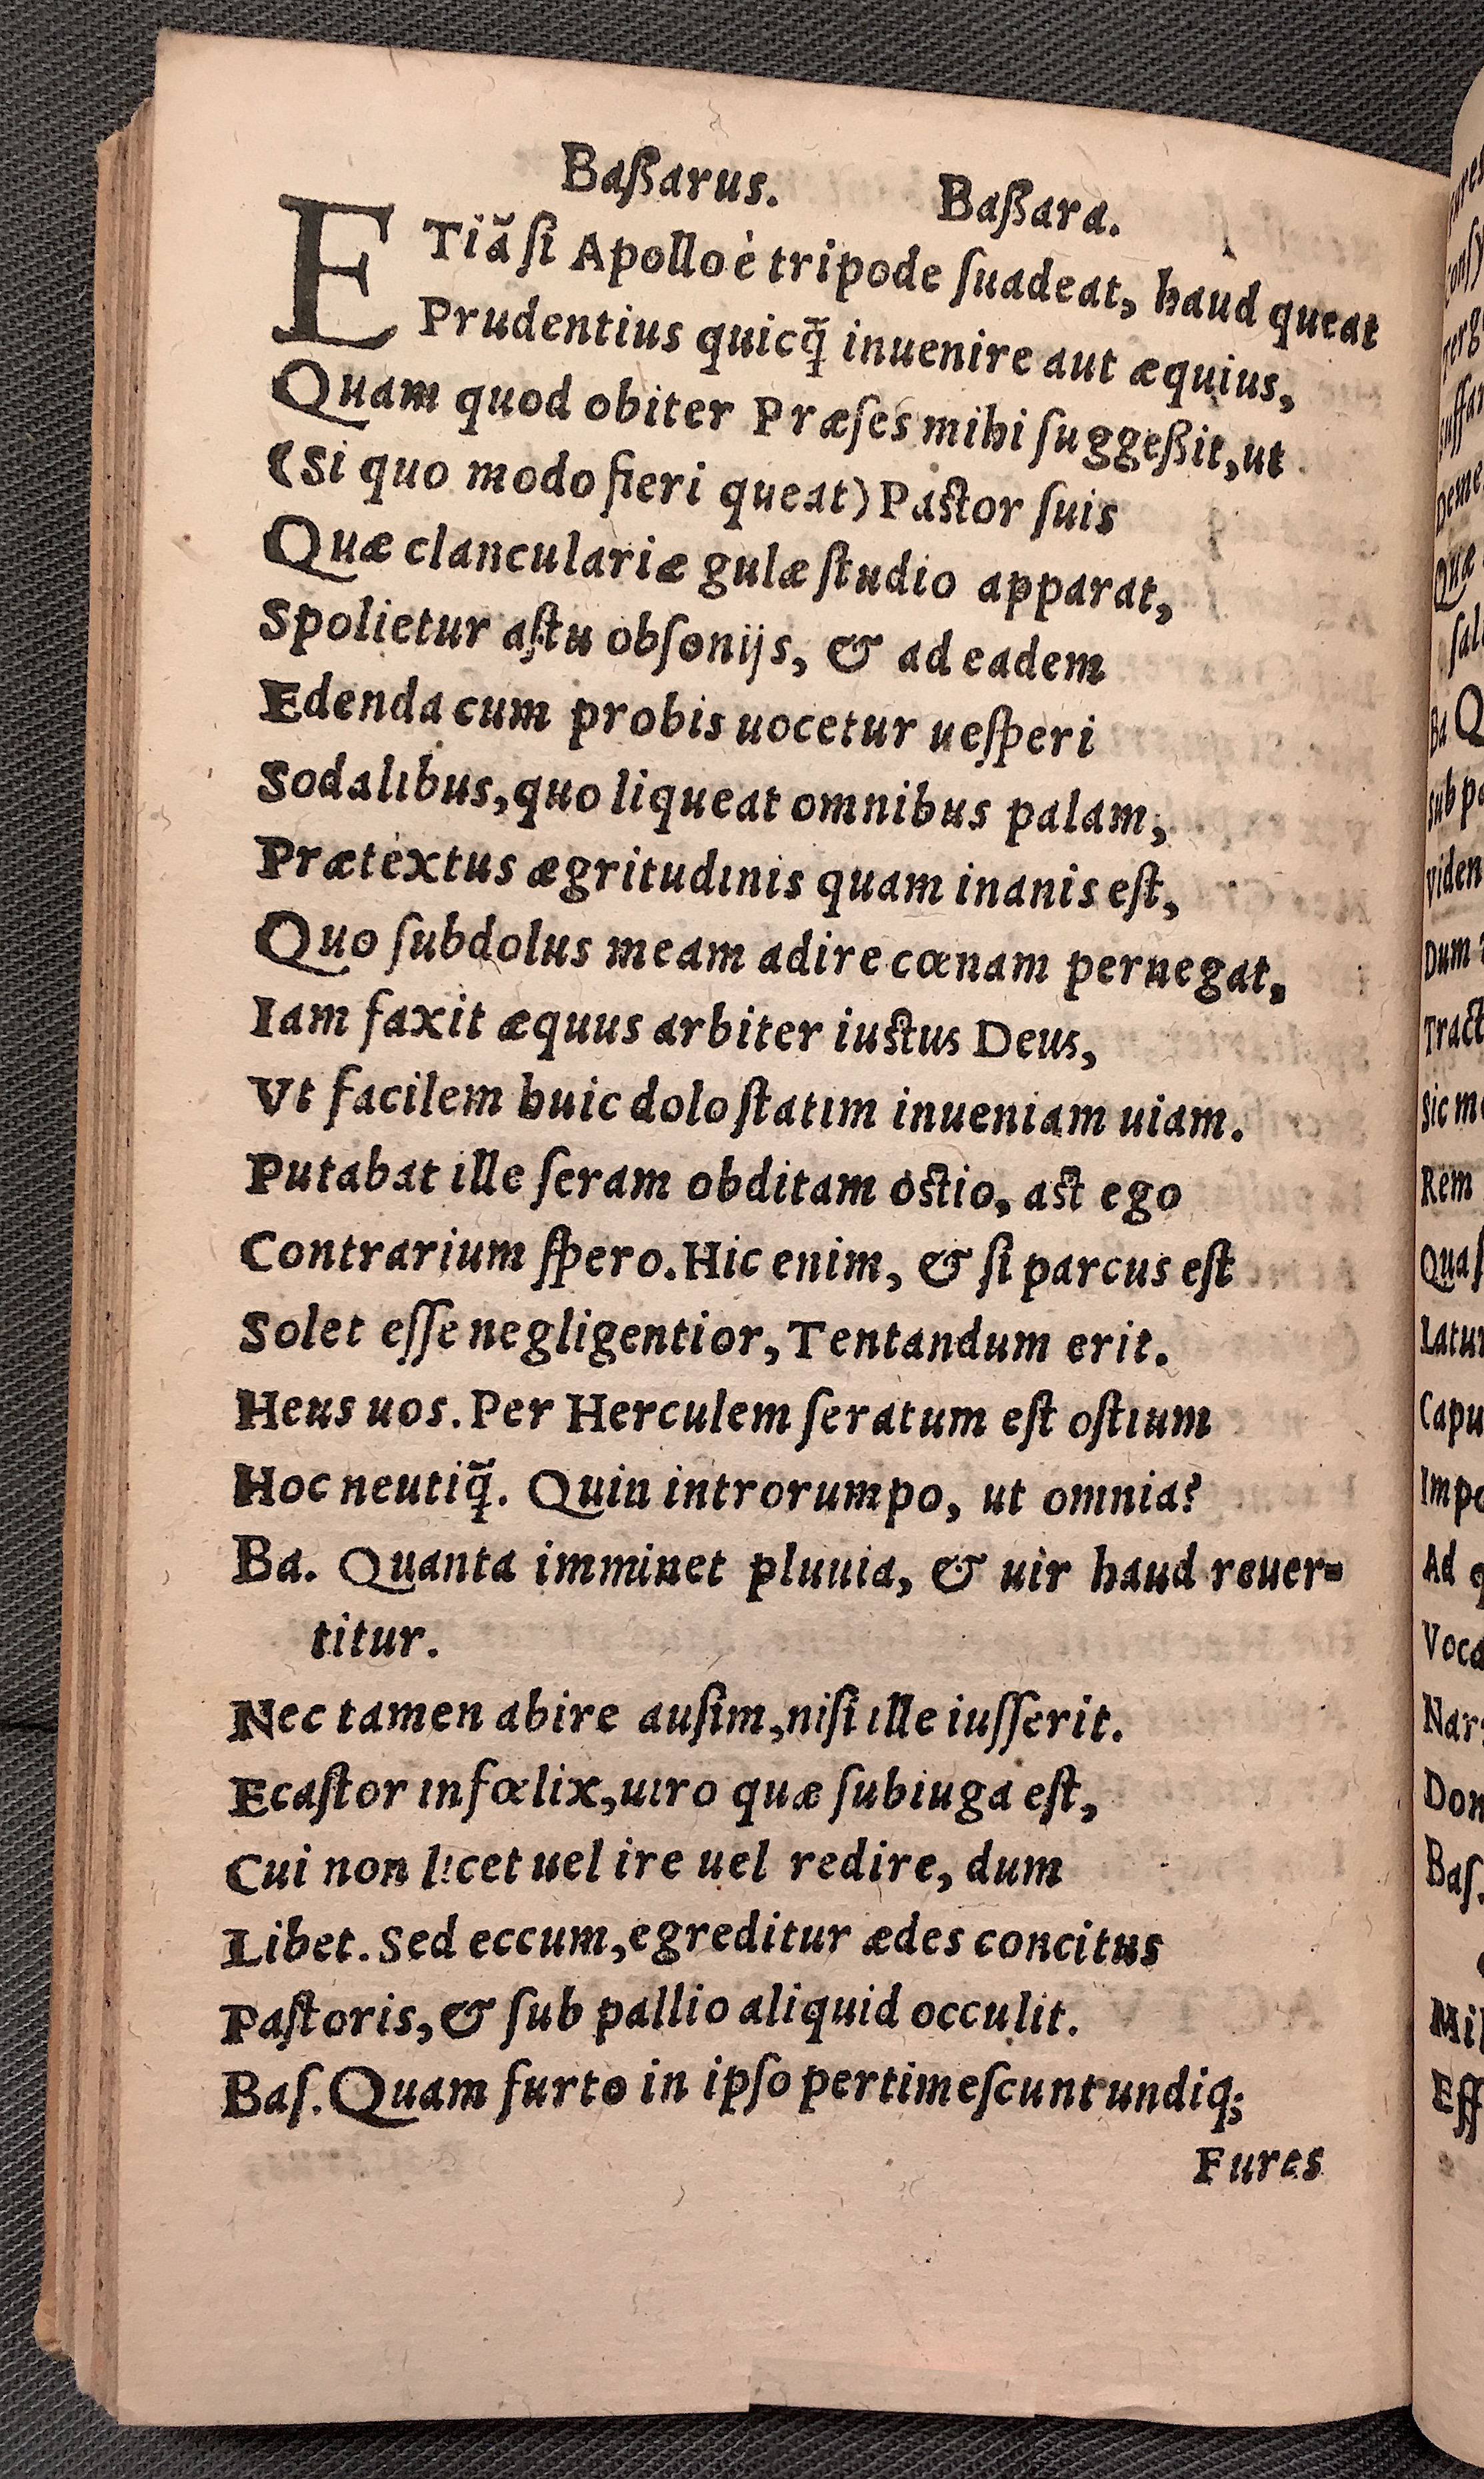 Baßarus. Baßara.
ETiã ſi Apollo è tripode ſuadeat, haud queat
Prudentius quicq̃ inuenire aut æquius,
Quam quod obiter Præſes mihi ſuggeßit, ut
(Si quo modo fieri queat) Paſtor ſuis
Quæ clanculariæ gulæ ſtudio apparat,
Spolietur aſtu obſonijs, & ad eadem
Edenda cum probis uocetur ueſperi
Sodalibus, quo liqueat omnibus palam,
Prætextus ægritudinis quam inanis eſt,
Quo ſubdolus meam adire cœnam pernegat,
Iam faxit æquus arbiter iuſtus Deus,
Vt facilem huic dolo ſtatim inueniam uiam.
Putabat ille ſeram obditam oſtio, aſt ego
Contrarium ſpero. Hic enim, & ſi parcus eſt
Solet eſſe negligentior, Tentandum erit.
Heus uos. Per Herculem ſeratum eſt oſtium
Hoc neutiq̃. Quin introrumpo, ut omnia?
Ba. Quanta imminet pluuia, & uir haud reuer=
titur.
Nec tamen abire auſim, niſi ille iuſſerit.
Ecaſtor infœlix, uiro quæ ſubiuga eſt,
Cui non licet uel ire uel redire, dum
Libet. Sed eccum, egreditur ædes concitus
Paſtoris, & ſub pallio aliquid occulit.
Baſ. Quam furto in ipſo pertimeſcunt undiq;
Fures
Ba Q
Sub pa
Viden
Dum
Tract
Sic me
Rem
Quaſ
Latu
Capu
Impo
Ad
Voca
Nar
Don
Baſ.
Mil
Eff